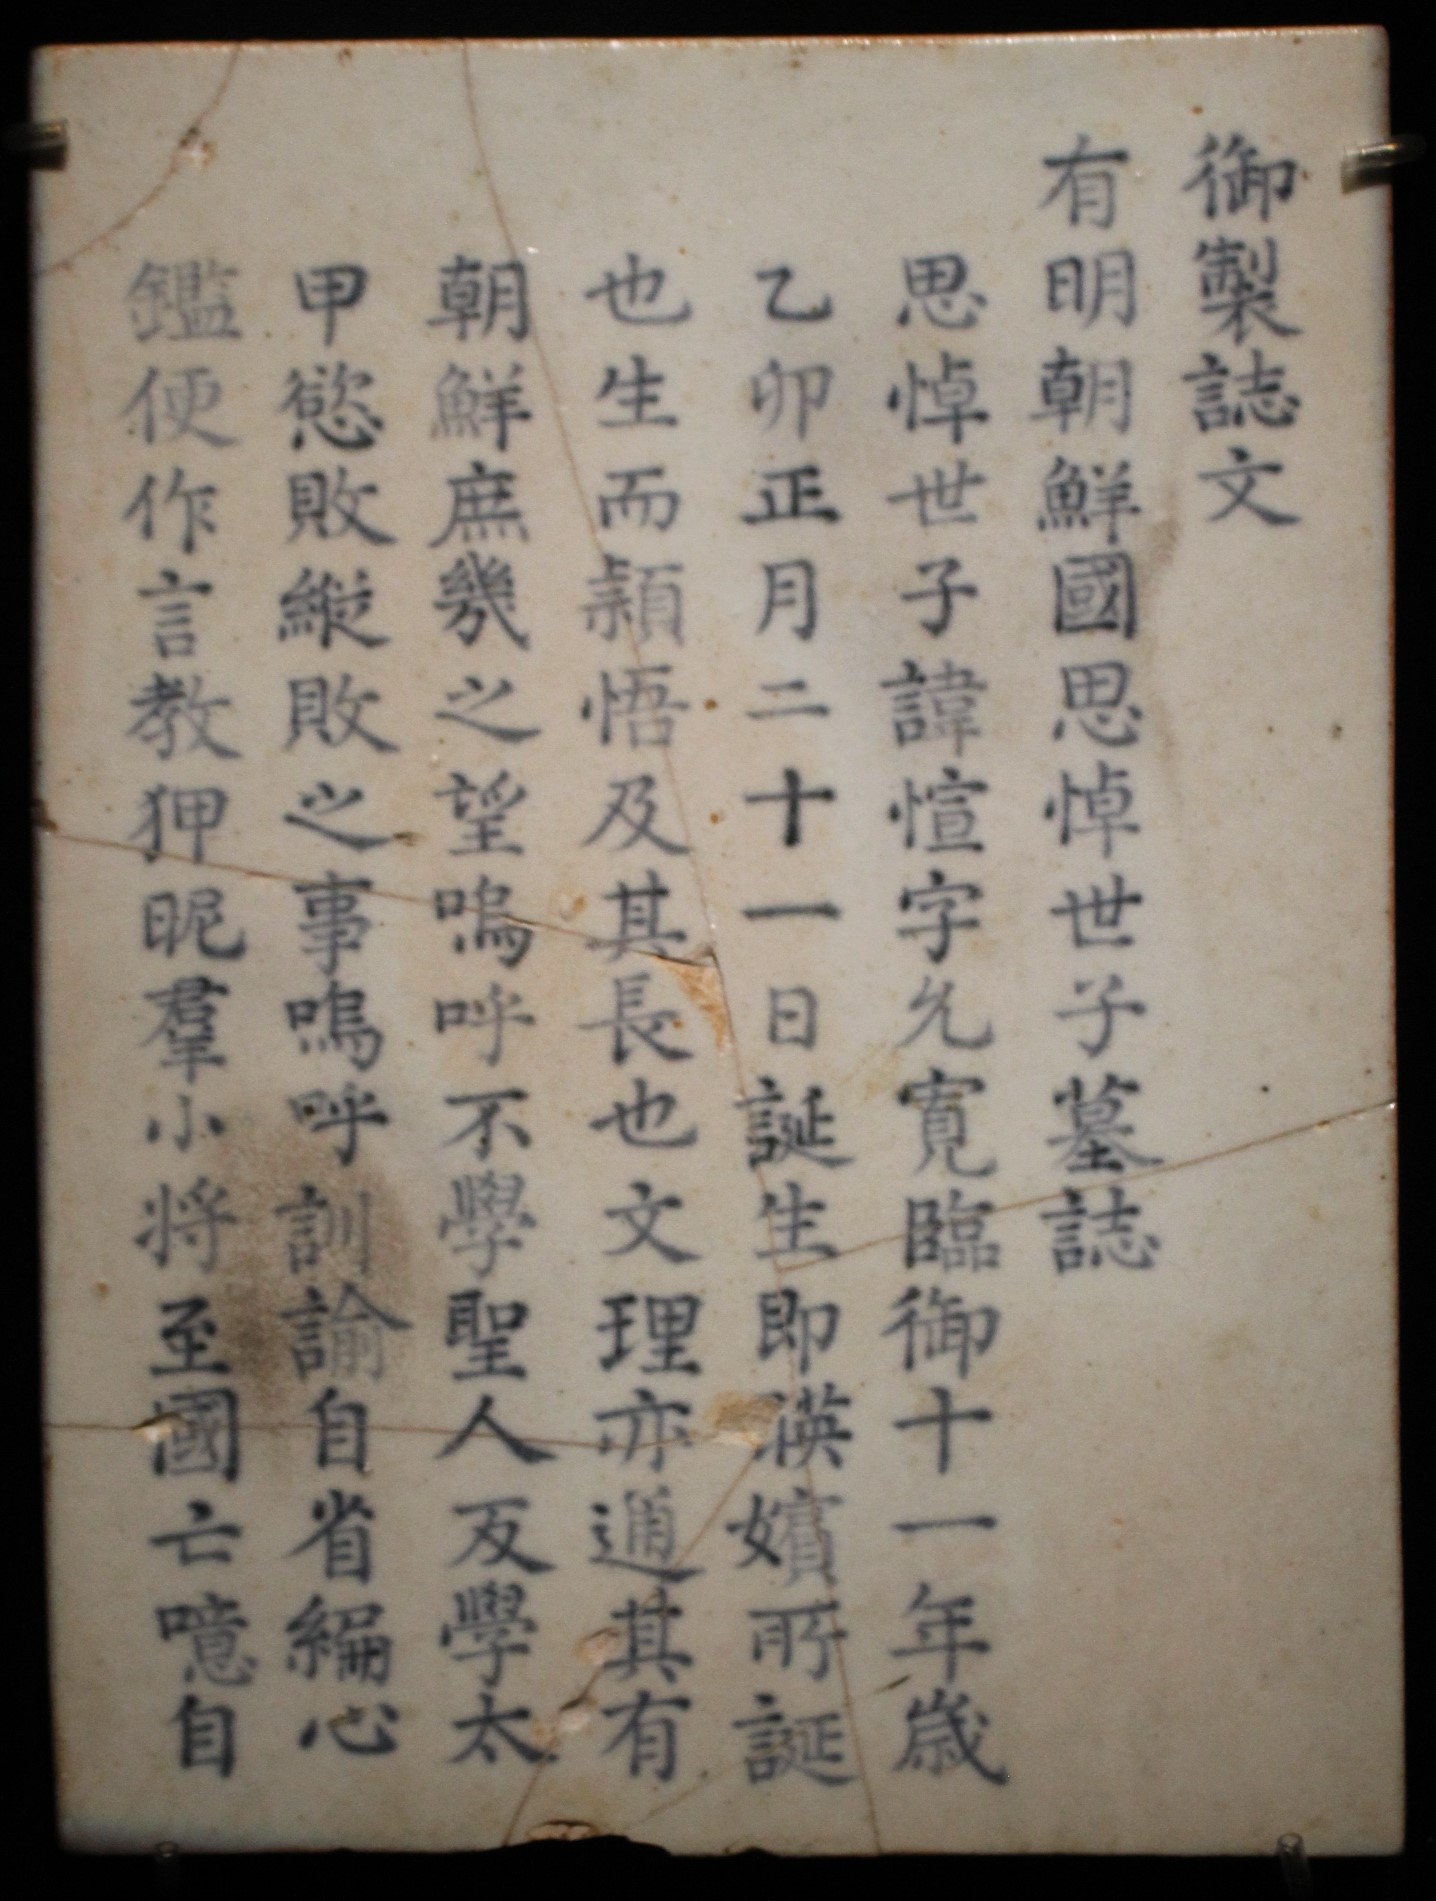 御製誌文
有明朝鮮國思悼世子墓誌
思悼世子諱愃字允寬臨御十一年歲
乙卯正月二十一日誕生即暎嬪所誕
也生而穎悟及其長也文理亦通其有
朝鮮庶幾之望嗚呼不學聖人反學太
甲慾敗縱敗之事嗚呼訓諭自省編心
鑑便作言教狎昵羣小將至國亡噫自